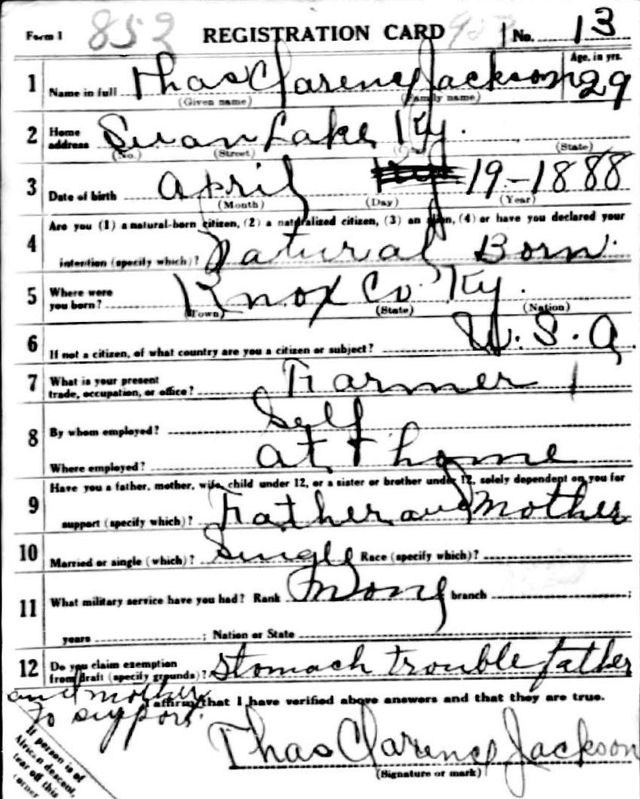 Form 1 853 REGISTRATION CARD No. 13
Age, in yrs.
1 Name in full Thas Clarence Jackson 29
(Given name) (Family name)
2 Home address Swan Lake Ky.
(No.) (Street) (State)
3 Date of birth April 19-1888
(Month) (Day) (Year)
4 Are you (1) a natural-born citizen, (2) a naturalized citizen, (3) an alien, (4) or have you declared your
intention (specify which)? Natural Born.
5 Where were you born? Knox Co Ky.
(Town) (State) (Nation)
6 If not a citizen, of what country are you a citizen or subject? U.S.A.
7 What is your present trade, occupation, or office? Farmer 1
8 By whom employed? Self
Where employed? at home
9 Have you a father, mother, wife, child under 12, or a sister or brother under 12, solely dependent on you for
support (specify which)? Father and Mother
10 Married or single (which)? Single Race (specify which)?
11 What military service have you had? Rank None branch ;
years ; Nation or State
12 Do you claim exemption from draft (specify grounds)? Stomach trouble father
and mother
to support.
I affirm that I have verified above answers and that they are true.
Thas Clarence Jackson
(Signature or mark)
If person is of
African descent,
tear off this
corner